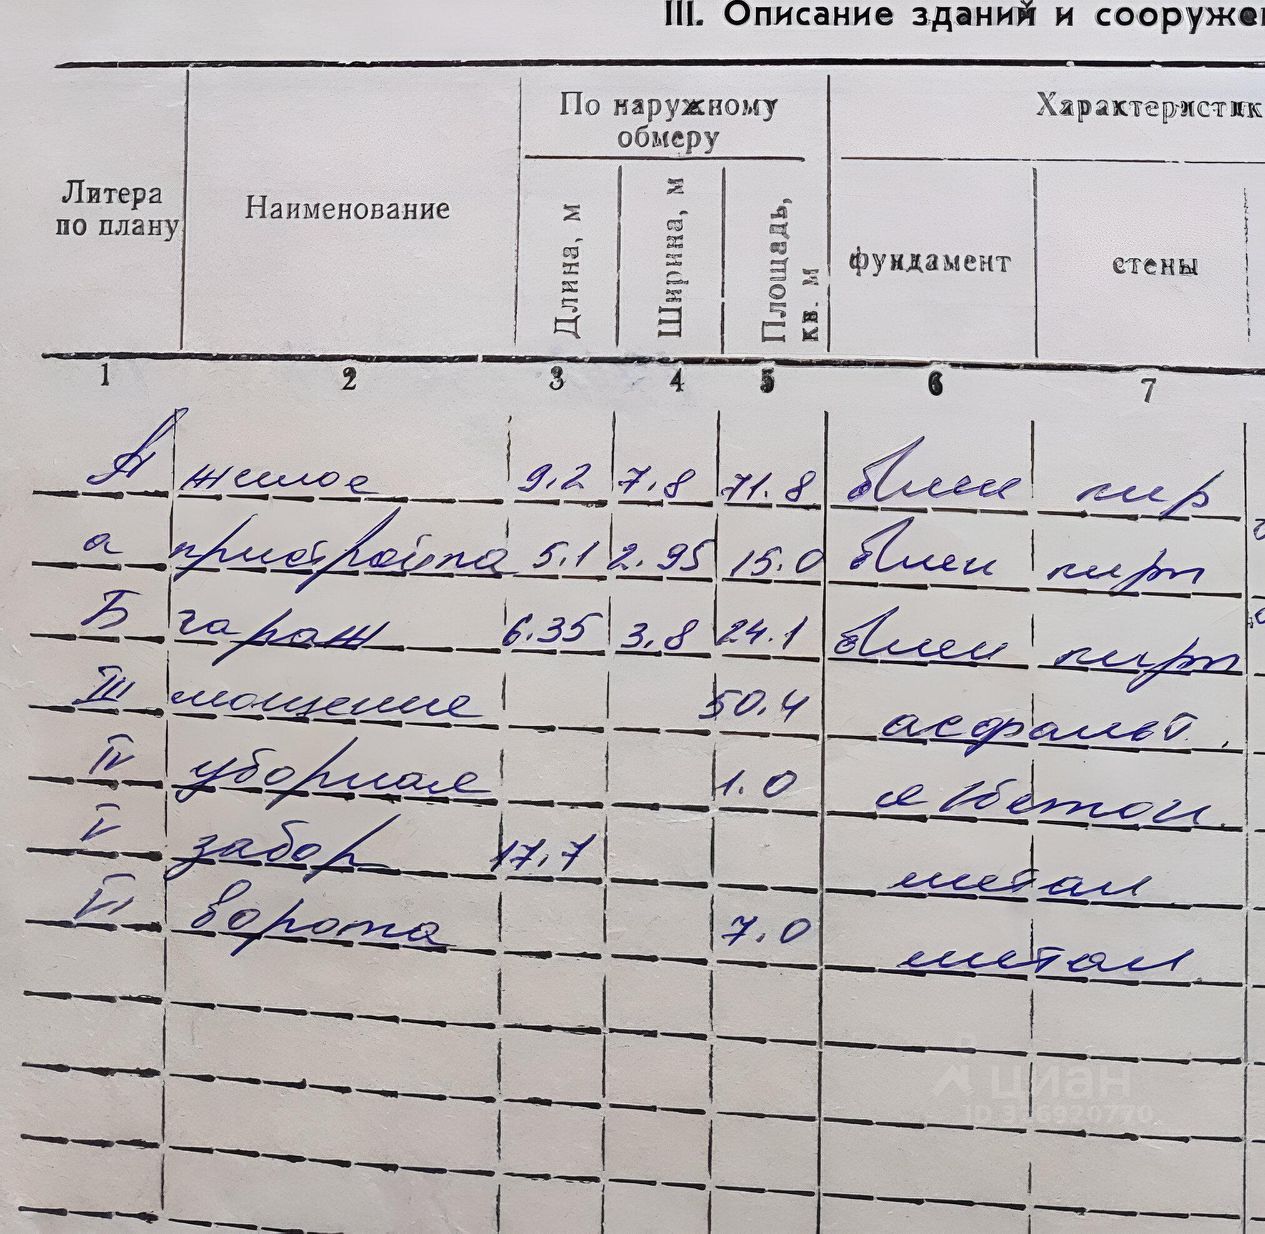 III. Описание зданий и сооруже
По наружному обмеру
Характеристик
Литера по плану
Наименование
Длина, м
Ширина, м
Площадь, кв. м
фундамент
стены
1 2 3 4 5 6 7
А жилое 9.2 7.8 71.8 блин кир
а пристройка 5.1 2.95 15.0 блин кирп
Б гараж 6.35 3.8 24.1 блин кирп
III мощение 50.4 асфальт.
IV уборная 1.0 бетон
V забор 17.7 метал
VI ворота 7.0 метал
циан